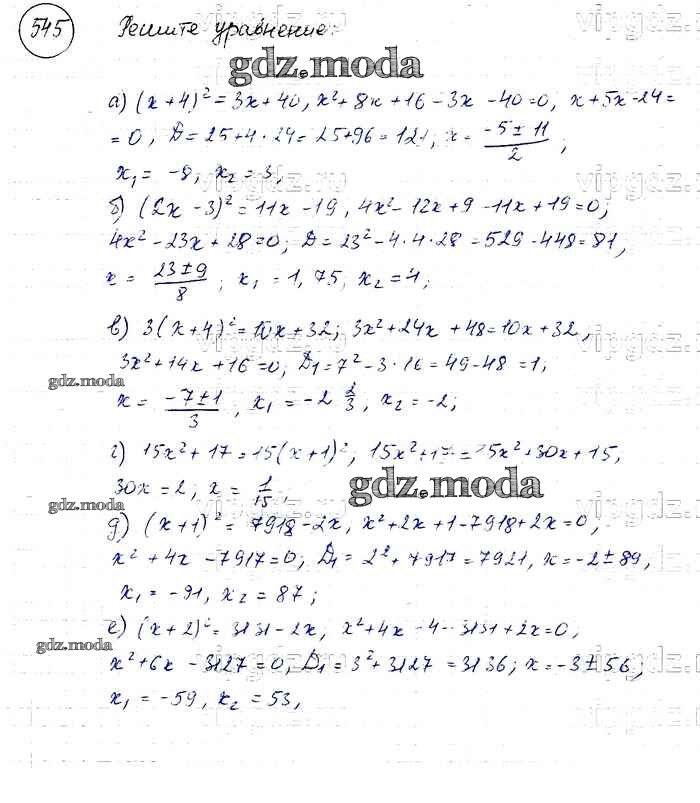 545 Решите уравнение:
vipgdz.ru
gdz.moda
а) (x+4)² = 3x+40, x²+8x+16-3x-40=0, x+5x-24=
=0, D=25+4·24=25+96=121, x= (-5±11)/2;
x₁=-8, x₂=3,
б) (2x-3)²=11x-19, 4x²-12x+9-11x+19=0;
4x²-23x+28=0; D=23²-4·4·28=529-448=81,
x= (23±9)/8; x₁=1,75; x₂=4;
в) 3(x+4)²=10x+32; 3x²+24x+48=10x+32,
3x²+14x+16=0; D₁=7²-3·16=49-48=1;
gdz.moda
x= (-7±1)/3, x₁=-2 2/3, x₂=-2;
г) 15x²+17=15(x+1)², 15x²+17=15x²+30x+15,
gdz.moda
30x=2; x= 1/15,
gdz.moda
д) (x+1)²=7918-2x, x²+2x+1-7918+2x=0,
x²+4x-7917=0; D₁=2²+7917=7921, x=-2±89,
x₁=-91, x₂=87;
е) (x+2)²=3131-2x, x²+4x-4-3131+2x=0,
gdz.moda
x²+6x-3127=0, D₁=3²+3127=3136; x=-3±56,
x₁=-59, x₂=53,